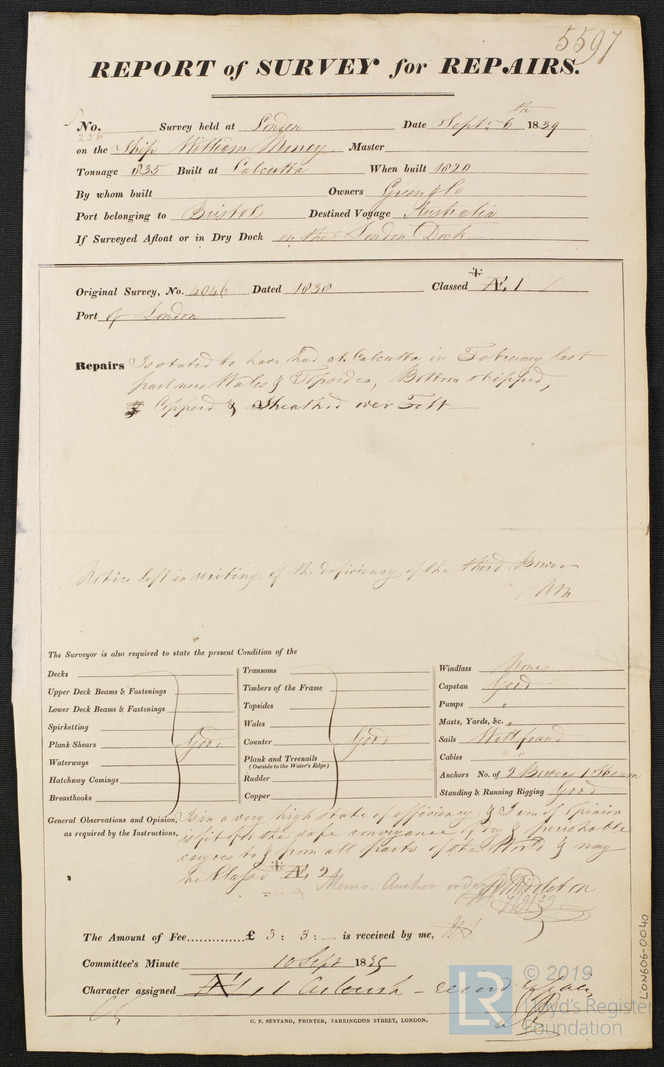 5597
REPORT of SURVEY for REPAIRS.
No. 256 Survey held at London Date Septr 6th 1839
on the Ship William Money Master
Tonnage 835 Built at Calcutta When built 1820
By whom built Owners Green & Co
Port belonging to Bristol Destined Voyage Australia
If Surveyed Afloat or in Dry Dock in the London Dock
Original Survey, No. 4046 Dated 1838 Classed Æ. 1
Port of London
Repairs Is stated to have had at Calcutta in February last
part new Wales & Topsides, Bottom stripped,
Coppered & Sheathed over Felt
Notice left in writing of the deficiency of the third Bower
The Surveyor is also required to state the present Condition of the
Decks
Upper Deck Beams & Fastenings
Lower Deck Beams & Fastenings
Spirketting
Plank Shears Good
Waterways
Hatchway Comings
Breasthooks
Transoms
Timbers of the Frame
Topsides
Wales
Counter Good
Plank and Treenails
(Outside to the Water's Edge)
Rudder
Copper
Windlass None
Capstan Good
Pumps "
Masts, Yards, &c. "
Sails Well found
Cables "
Anchors No. of 2 Bowers 1 Stream
Standing & Running Rigging Good
General Observations and Opinion, Is in a very high state of efficiency & I am of opinion
as required by the Instructions, is fit for the safe conveyance of dry & perishable
cargoes to & from all parts of the World & may
be Classed Æ. 2
Memo. Anchor
The Amount of Fee...............£ 3 : 3 : — is received by me,
Committee's Minute 10 Sept 1839
Character assigned
C. F. SEYFANG, PRINTER, FARRINGDON STREET, LONDON.
LON606-0040
LR
© 2019
Lloyd's Register
Foundation